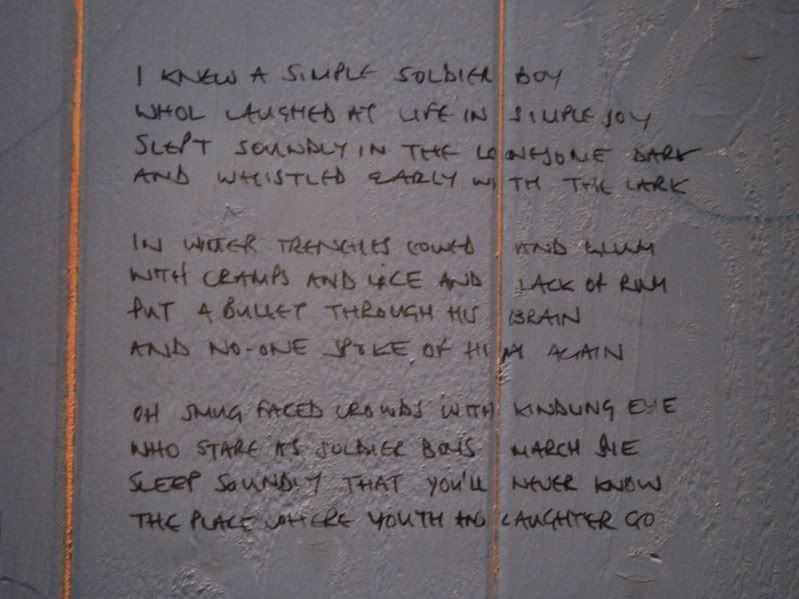 I KNEW A SIMPLE SOLDIER BOY
WHOL LAUGHED AT LIFE IN SIMPLE JOY
SLEPT SOUNDLY IN THE LONESOME DARK
AND WHISTLED EARLY WITH THE LARK
IN WINTER TRENCHES COWED AND GLUM
WITH CRAMPS AND LICE AND LACK OF RUM
PUT A BULLET THROUGH HIS BRAIN
AND NO-ONE SPOKE OF HIM AGAIN
OH SMUG FACED CROWDS WITH KINDLING EYE
WHO STARE AS SOLDIER BOYS MARCH
SLEEP SOUNDLY THAT YOU'LL NEVER KNOW
THE PLACE WHERE YOUTH AND LAUGHTER GO